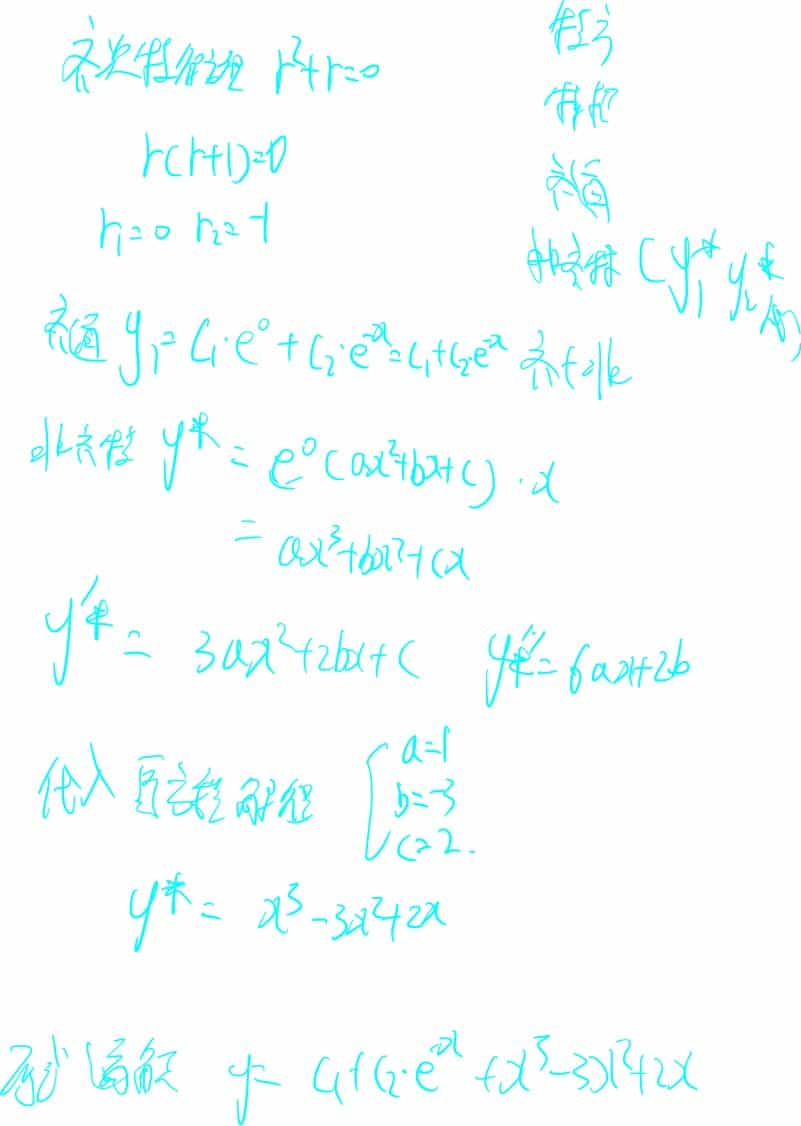 齐次特征方程 r²+r=0
r(r+1)=0
r₁=0 r₂=-1
特方
特根
齐通
非齐特 (y₁* y₂*
齐通 y₁=C₁·e⁰+C₂·e⁻ˣ=C₁+C₂·e⁻ˣ
非齐特 y*=e⁰(ax²+bx+c)·x
=ax³+bx²+cx
y*′=3ax²+2bx+c y*″=6ax+2b
代入原方程解得 {a=1
b=-3
c=2.
y*=x³-3x²+2x
通解 y=C₁+C₂·e⁻ˣ+x³-3x²+2x